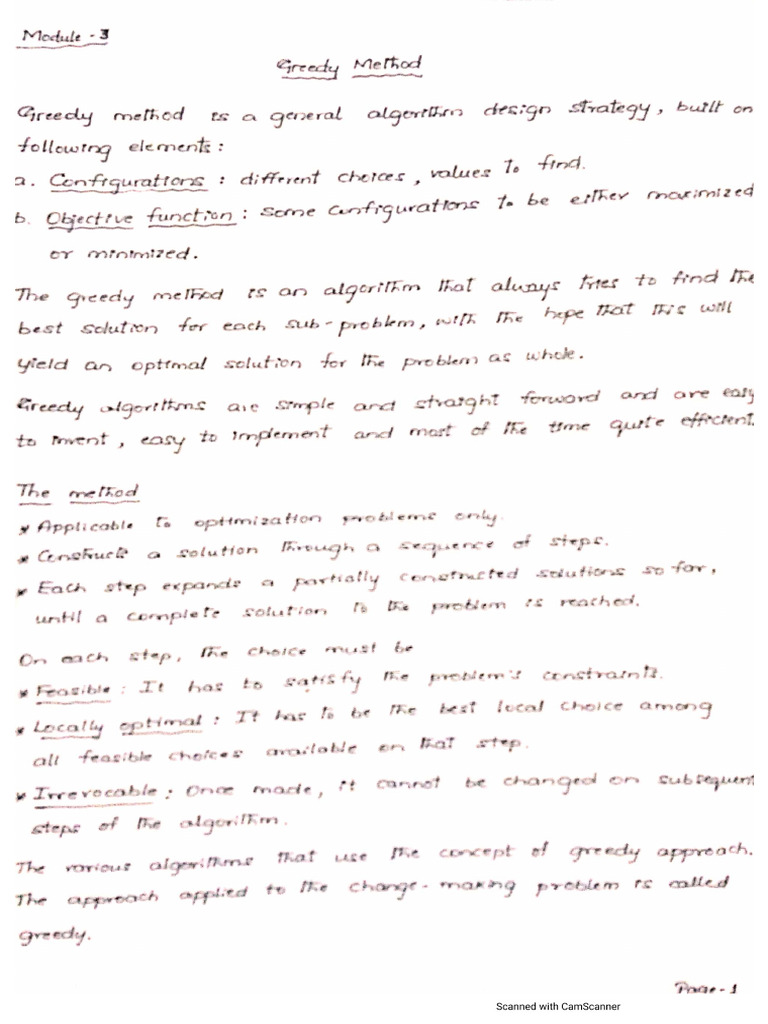 Module - 3
Greedy Method
Greedy method is a general algorithm design strategy, built on
following elements :
a. Configurations : different choices, values to find.
b. Objective function : some configurations to be either maximized
or minimized.
The greedy method is an algorithm that always tries to find the
best solution for each sub-problem, with the hope that this will
yield an optimal solution for the problem as whole.
Greedy algorithms are simple and straight forward and are easy
to invent, easy to implement and most of the time quite efficient.
The method
* Applicable to optimization problems only.
* Construct a solution through a sequence of steps.
* Each step expands a partially constructed solutions so far,
until a complete solution to the problem is reached.
On each step, the choice must be
* Feasible : It has to satisfy the problem's constraints.
* Locally optimal : It has to be the best local choice among
all feasible choices available on that step.
* Irrevocable : Once made, it cannot be changed on subsequent
steps of the algorithm.
The various algorithms that use the concept of greedy approach.
The approach applied to the change-making problem is called
greedy.
Page - 1
Scanned with CamScanner